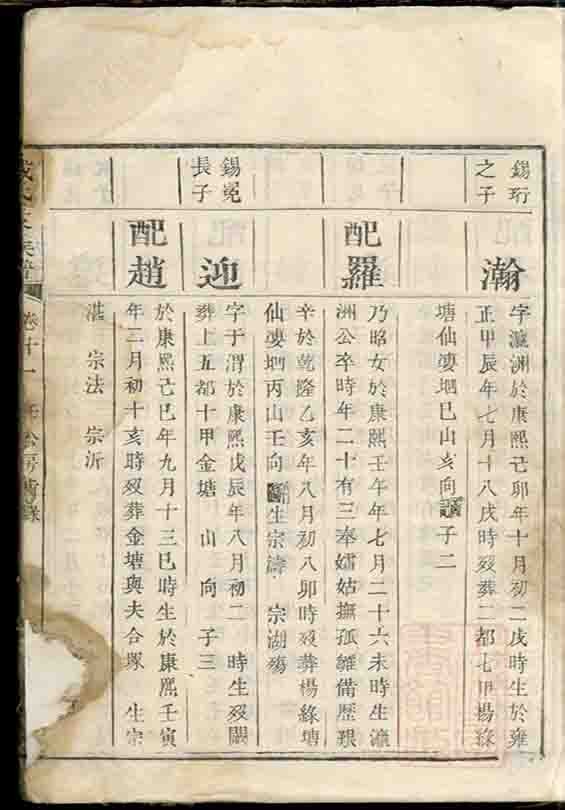 錫珩
之子
瀚
字瀛洲於康熙己卯年十月初二戌時生於雍
正甲辰年七月十八戌時歿葬二都七甲楊綠
塘仙婆地巳山亥向 子二
配羅
乃昭女於康熙壬午年七月二十六未時生瀛
洲公卒時年二十有三奉孀姑撫孤維備歷艱
辛於乾隆乙亥年八月初八卯時歿葬楊綠塘
仙婆地丙山壬向 生宗濤 宗湖殤
錫冕
長子
迎
字于渭於康熙戊辰年八月初二 時生歿闕
葬上五都十甲金塘 山 向 子三
配趙
於康熙己巳年九月十三巳時生於康熙壬寅
年二月初十亥時歿葬金塘與夫合塚 生宗
湛 宗法 宗沂
卷十一